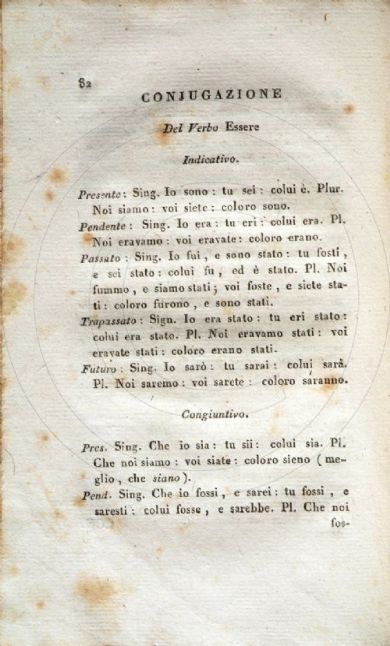 82
CONJUGAZIONE
Del Verbo Essere
Indicativo.
Presente: Sing. Io sono: tu sei: colui è. Plur.
Noi siamo: voi siete: coloro sono.
Pendente: Sing. Io era: tu eri: colui era. Pl.
Noi eravamo: voi eravate: coloro erano.
Passato: Sing. Io fui, e sono stato: tu fosti,
e sei stato: colui fu, ed è stato. Pl. Noi
fummo, e siamo stati; voi foste, e siete sta-
ti: coloro furono, e sono stati.
Trapassato: Sign. Io era stato: tu eri stato:
colui era stato. Pl. Noi eravamo stati: voi
eravate stati: coloro erano stati.
Futuro: Sing. Io sarò: tu sarai: colui sarà.
Pl. Noi saremo: voi sarete: coloro saranno.
Congiuntivo.
Pres. Sing. Che io sia: tu sii: colui sia. Pl.
Che noi siamo: voi siate: coloro sieno (me-
glio, che siano).
Pend. Sing. Che io fossi, e sarei: tu fossi, e
saresti: colui fosse, e sarebbe. Pl. Che noi
fos-